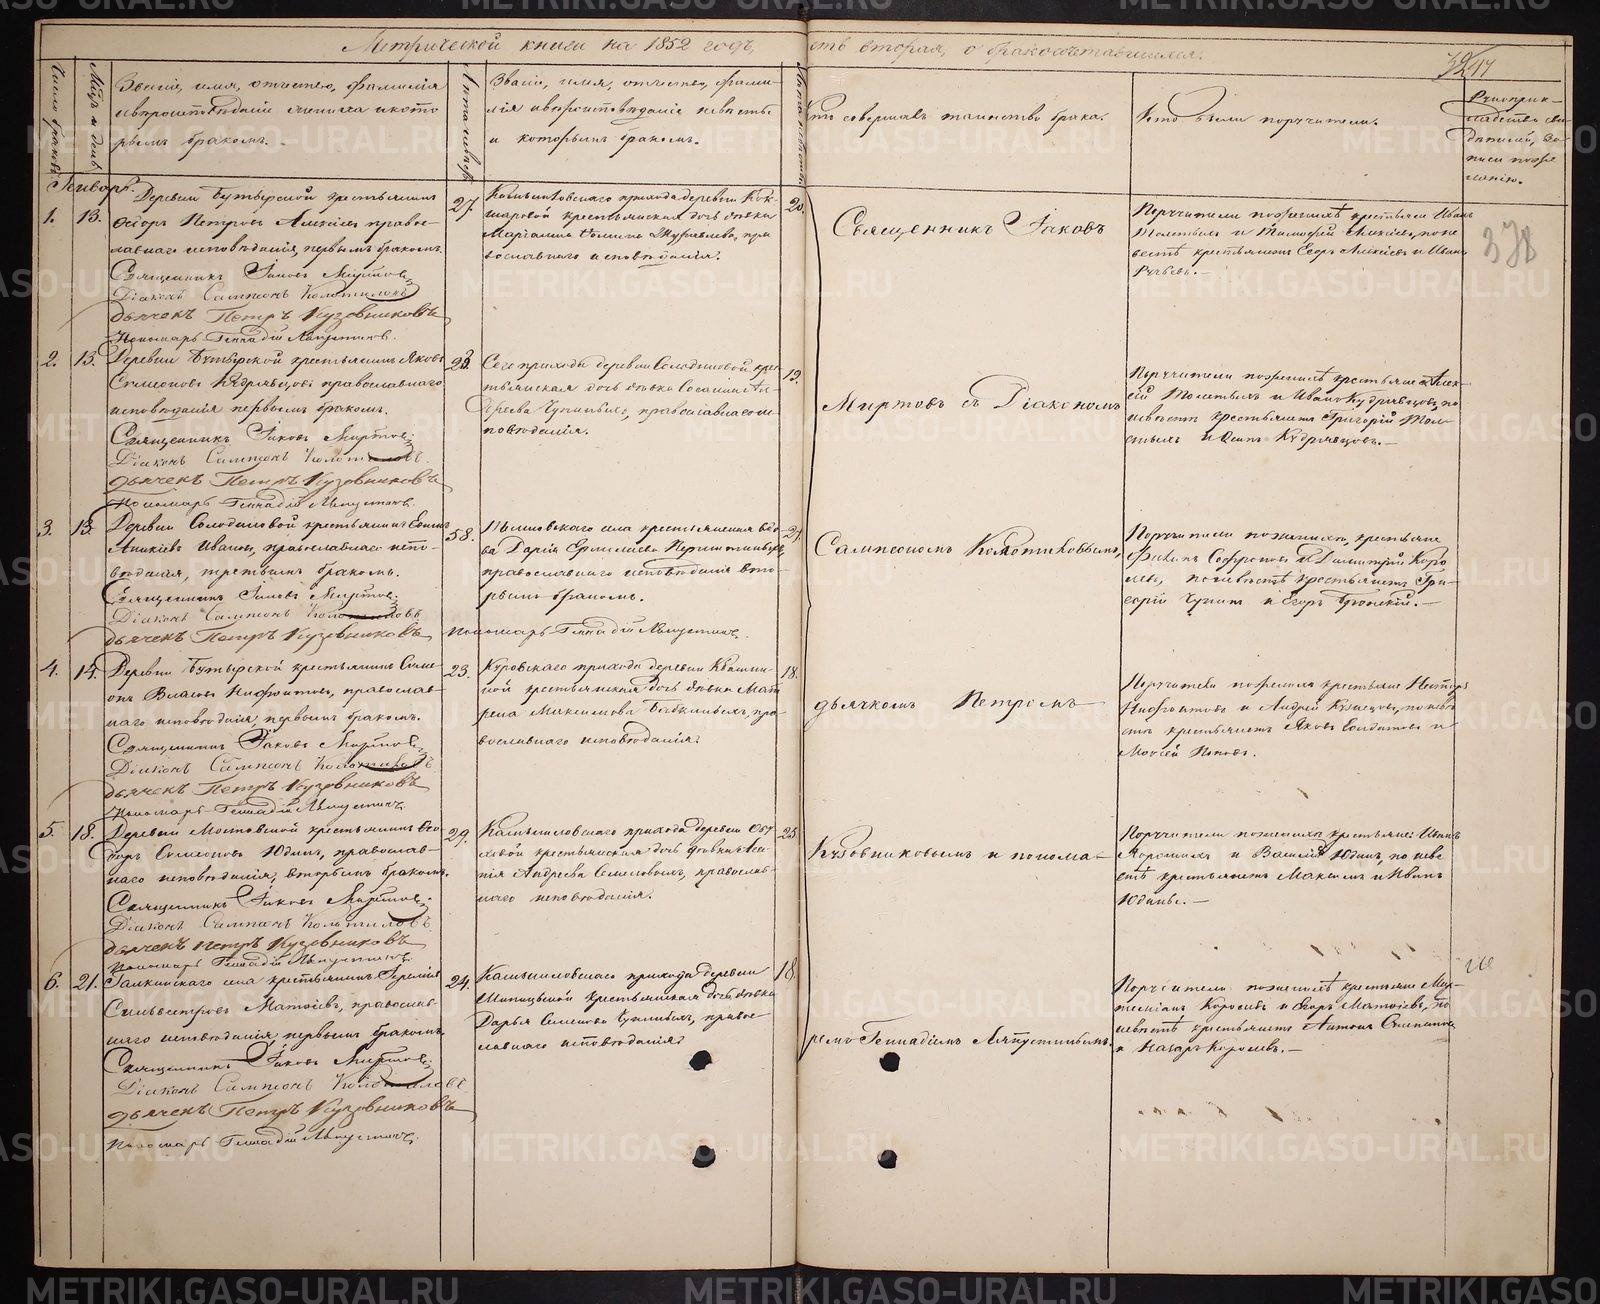 Метрической книги на 1852 годъ,
сть вторая, о бракосочетавшихся.
Число браковъ.
Мѣсяцъ и день.
Званіе, имя, отчество, фамилія
и вѣроисповѣданіе жениха и кото
рымъ бракомъ.
Лѣта жениха
Званіе, имя, отчество, фами-
лія и вѣроисповѣданіе невѣсты
и которымъ бракомъ.
Лѣта невѣсты
Кто совершалъ таинство брака.
Кто были поручители.
Рукоприк-
ладство сви-
дѣтелей, за-
писи по же
ланію.
Январь.
1. 13.
Деревни Бутырской крестьянинъ
Ѳедоръ Петровъ Алексіевъ правос-
лавнаго исповѣданія, первымъ бракомъ.
Священникъ Іаковъ Миртовъ
Діаконъ Сампсонъ Колотиловъ
дьячекъ Петръ Кузовниковъ
Пономарь Геннадій Ляпустинъ.
27.
Камышловскаго прихода деревни Кок-
шаровой крестьянская дочь дѣвка
Маріамна Ѳомина Журавлева, пра
вославнаго исповѣданія.
20.
Поручители по женихѣ крестьяне Иванъ
Толстыхъ и Тимофей Алексіевъ, по не
вѣстѣ крестьянинъ Егоръ Алексіевъ и Иванъ
Ручьевъ.
378
2. 13.
Деревни Бутырской крестьянинъ Яковъ
Симеоновъ Кудрявцовъ православнаго
исповѣданія первымъ бракомъ.
Священникъ Іаковъ Миртовъ
Діаконъ Сампсонъ Колотиловъ
дьячекъ Петръ Кузовниковъ
Пономарь Геннадій Ляпустинъ.
Сего прихода деревни Солодиловой крес
тьянская дочь дѣвка Сосанна Ан-
дреева Чупина, православнаго ис
повѣданія.
19.
Поручители по женихѣ крестьяне Алек-
сій Толстыхъ и Иванъ Кудрявцовъ, по
невѣстѣ крестьянинъ Григорій Тол-
стыхъ и Осипъ Кудрявцовъ.
3. 13.
Деревни Солодиловой крестьянинъ
Аникіевъ Ивановъ, православнаго испо-
вѣданія, третьимъ бракомъ.
Священникъ Іаковъ Миртовъ
Діаконъ Сампсонъ Колотиловъ
дьячекъ Петръ Кузовниковъ
Пономарь Геннадій Ляпустинъ.
58.
села крестьянская вдо-
ва Дарія Ермилаева
православнаго исповѣданія вто-
рымъ бракомъ.
Поручители по женихѣ крестьяне
Софроновъ и Димитрій Коро
левъ, по невѣстѣ крестьянинъ Гри-
горій Чупинъ и Егоръ
4. 14.
Деревни Бутырской крестьянинъ Симе-
онъ Власовъ Нифонтовъ, православ-
наго исповѣданія, первымъ бракомъ.
Священникъ Іаковъ Миртовъ
Діаконъ Сампсонъ Колотиловъ
дьячекъ Петръ Кузовниковъ
Пономарь Геннадій Ляпустинъ.
23.
Куровскаго прихода деревни Квашни-
ной крестьянская дочь дѣвка Мат
рена Максимова Бабкиныхъ, пра
вославнаго исповѣданія.
18.
Поручители по женихѣ крестьяне Несторъ
Нифонтовъ и Андрей Кузнецовъ, по невѣс
тѣ крестьянинъ Яковъ Солдатовъ и
Моисей Поповъ.
5. 18.
Деревни Мостовской крестьянинъ Ѳео-
доръ Симеоновъ Юдинъ, православ-
наго исповѣданія, вторымъ бракомъ.
Священникъ Іаковъ Миртовъ
Діаконъ Сампсонъ Колотиловъ
дьячекъ Петръ Кузовниковъ
Пономарь Геннадій Ляпустинъ.
29.
Камышловскаго прихода деревни Обу
ховой крестьянская дочь дѣвка
Андреева Семеновыхъ, православ-
наго исповѣданія.
25.
Поручители по женихѣ крестьяне Иванъ
и Василій Юдинъ, по невѣ
стѣ крестьянинъ Максимъ и Иванъ
Юдины.
6. 21.
Галкинскаго села крестьянинъ Іеремія
Сильвестровъ Матвіевъ, православ-
наго исповѣданія, первымъ бракомъ.
Священникъ Іаковъ Миртовъ
Діаконъ Сампсонъ Колотиловъ
дьячекъ Петръ Кузовниковъ
Пономарь Геннадій Ляпустинъ.
24.
Камышловскаго прихода деревни
Шипицыной крестьянская дочь дѣвка
Дарья Семенова православнаго исповѣданія
18.
Поручители по женихѣ крестьяне
Королевъ и Егоръ Матвіевъ, по
невѣстѣ крестьянинъ Антонъ Степановъ
и Назаръ Королевъ.
Священникъ Іаковъ
Миртовъ съ Діакономъ
Сампсономъ Колотиловымъ,
дьячкомъ Петромъ
Кузовниковымъ и понома-
ремъ Геннадіемъ Ляпустинымъ.
METRIKI.GASO-URAL.RU